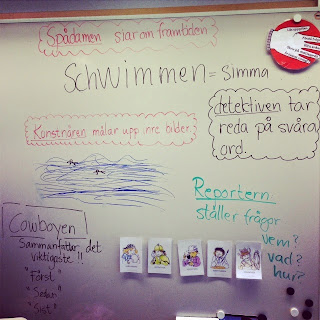 Spådamen siar om framtiden
Schwimmen = Simma
detektiven tar
reda på svåra
ord.
Konstnären målar upp inre bilder.
Reportern
ställer frågor
vem?
vad?
hur?
Cowboyen
Sammanfattar det
viktigaste !!
"Först"
"Sedan"
"Sist"